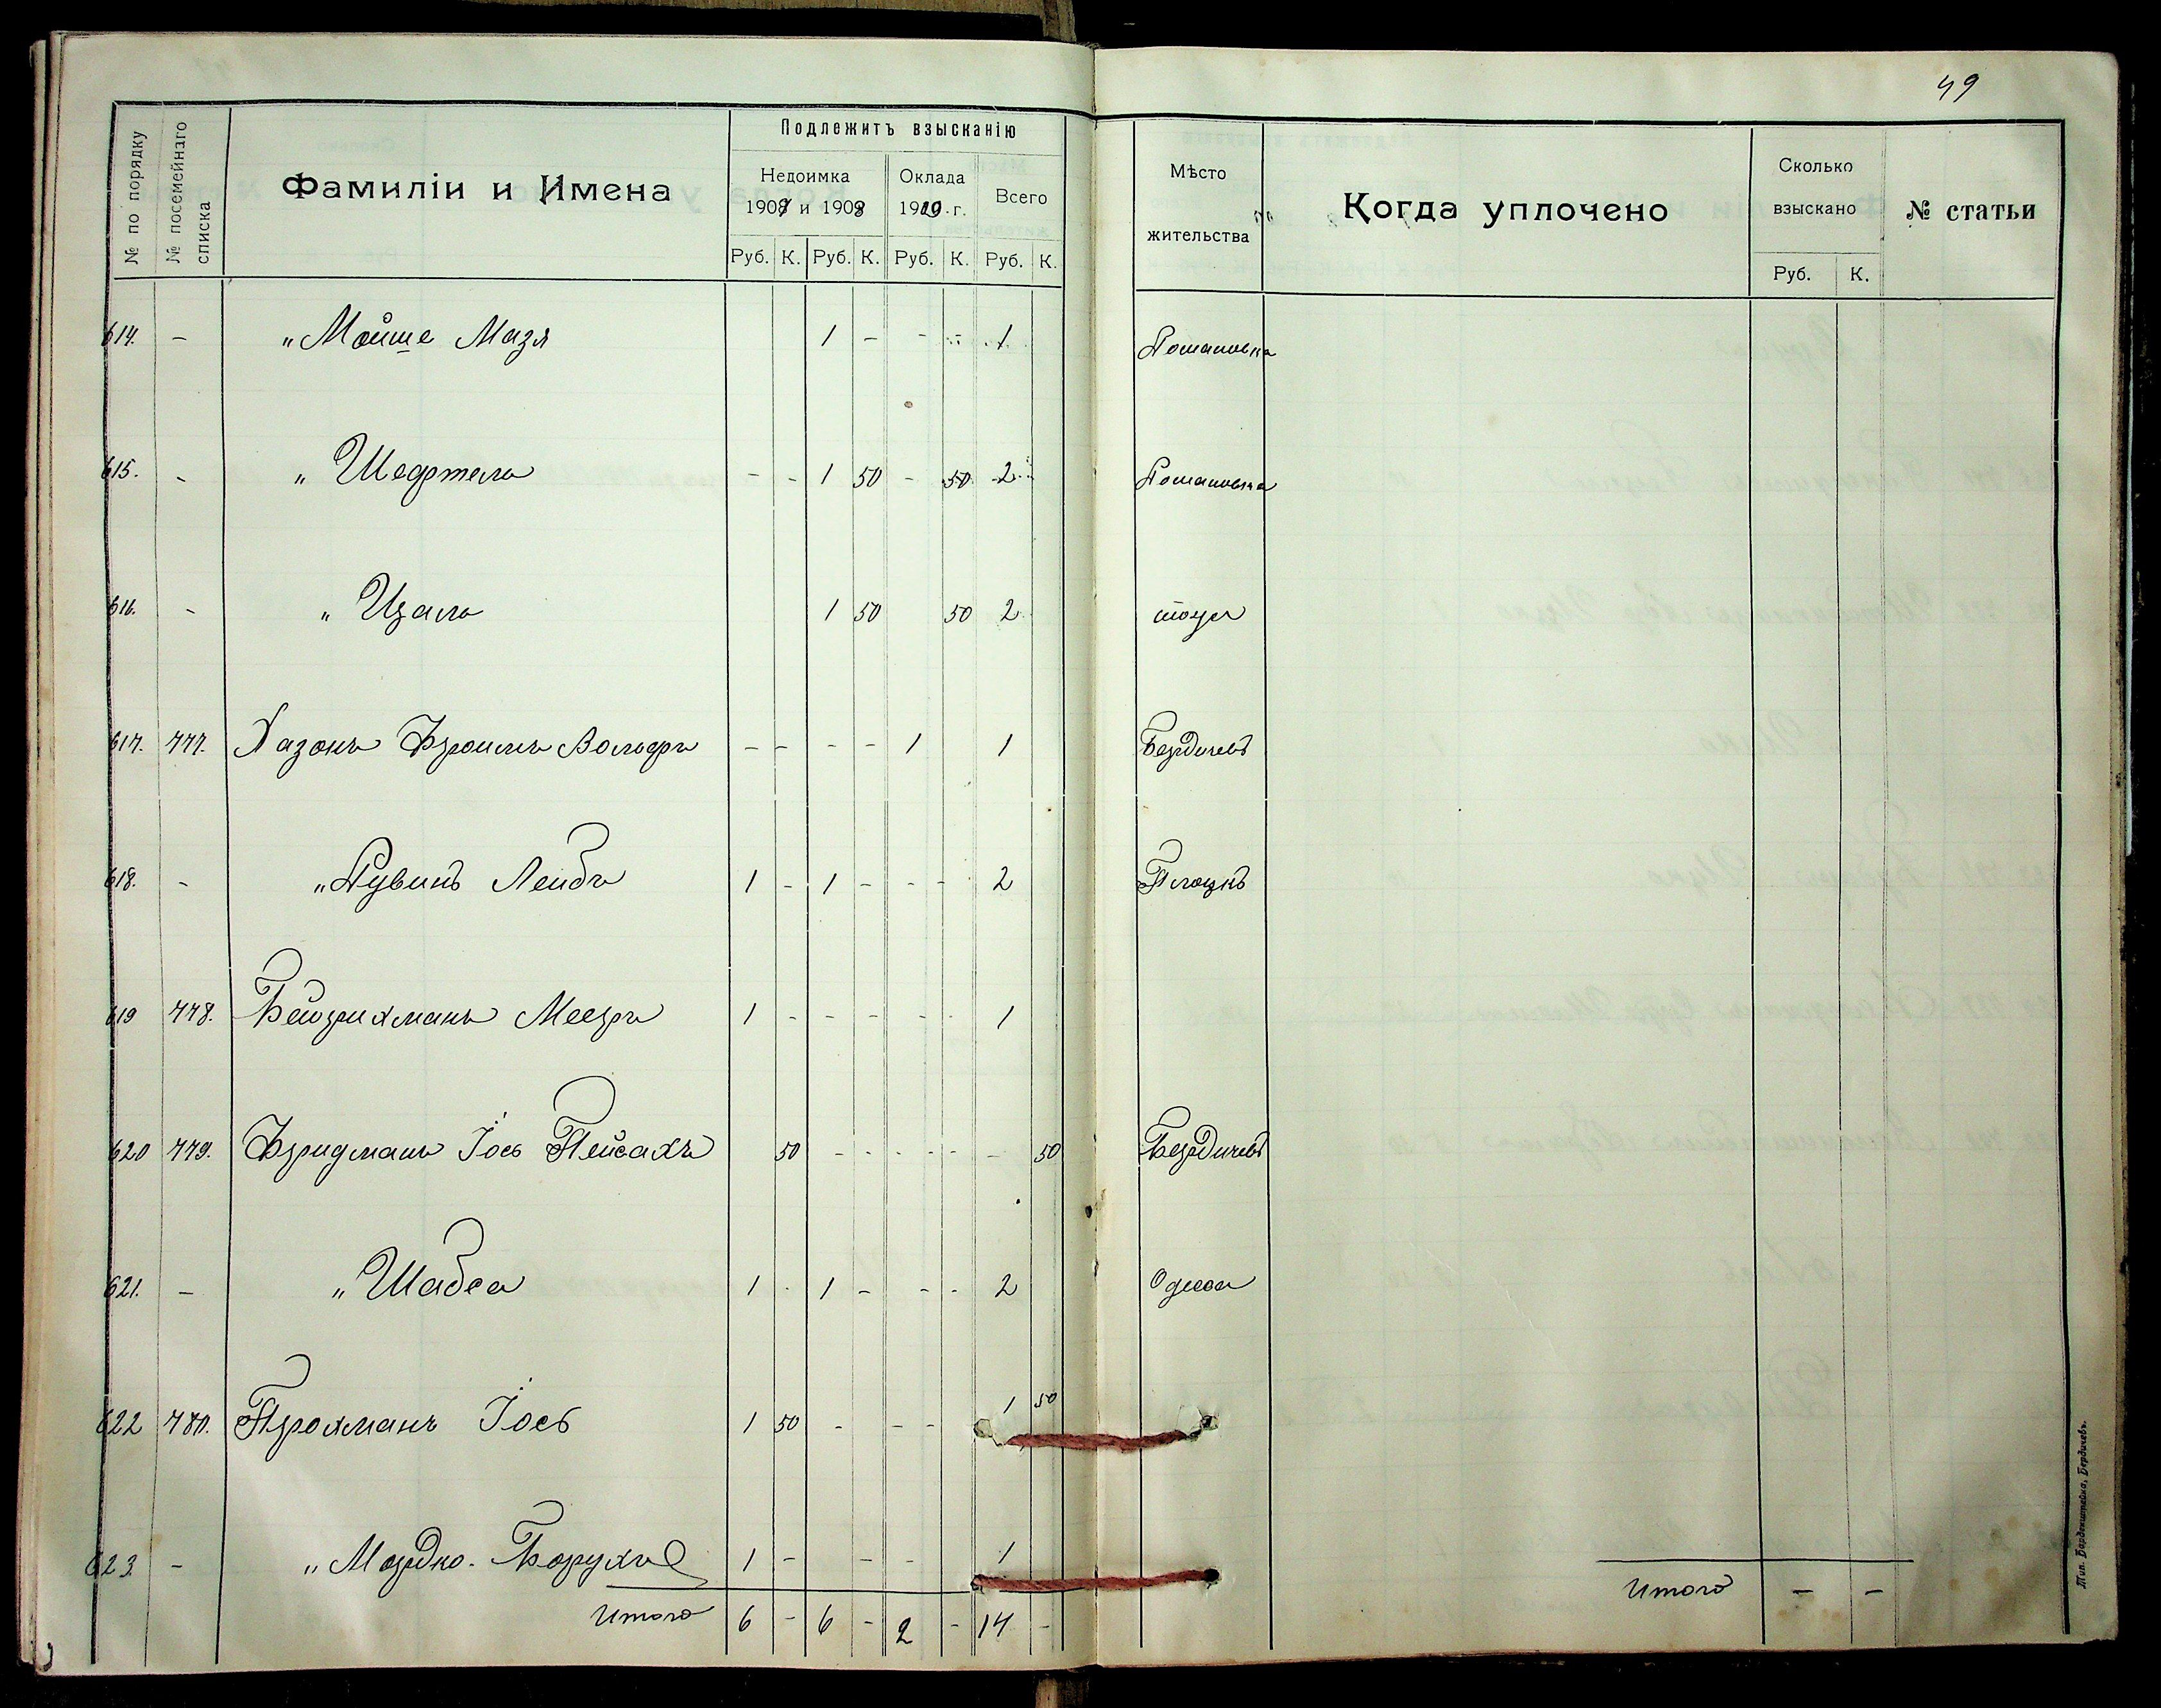 49
№ по порядку
№ посемейнаго списка
Фамиліи и Имена
Подлежитъ взысканію
Недоимка
1907 и 1908
Оклада
1909 г.
Всего
Руб. К. Руб. К. Руб. К. Руб. К.
Мѣсто
жительства
Когда уплочено
Сколько
взыскано
Руб. К.
№ статьи
614. - „ Мойше Мазя 1 - - - 1
615. - „ Шефтель - - 1 50 - 50 2 Романовка
616. - „ Цаль 1 50 50 2
617. 477. Хазонъ Фроимъ Вольфъ - - - - 1 1 Бердичевъ
618. - „ Рувинъ Лейбъ 1 - 1 - - - 2 Плоцкъ
619 478. Мееръ 1 - - - - - 1
620 479. Фридманъ Іось Пейсахъ 50 - - - - - 50 Бердичевъ
621. - „ Шабса 1 - 1 - - - 2 Одесса
622 480. Прохманъ Іось 1 50 - - - 1 50
623 - „ Мордко-Борухъ 1 - - - 1
Итого 6 - 6 - 2 - 14 -
Итого - -
Тип. Барденштейна, Бердичевъ.